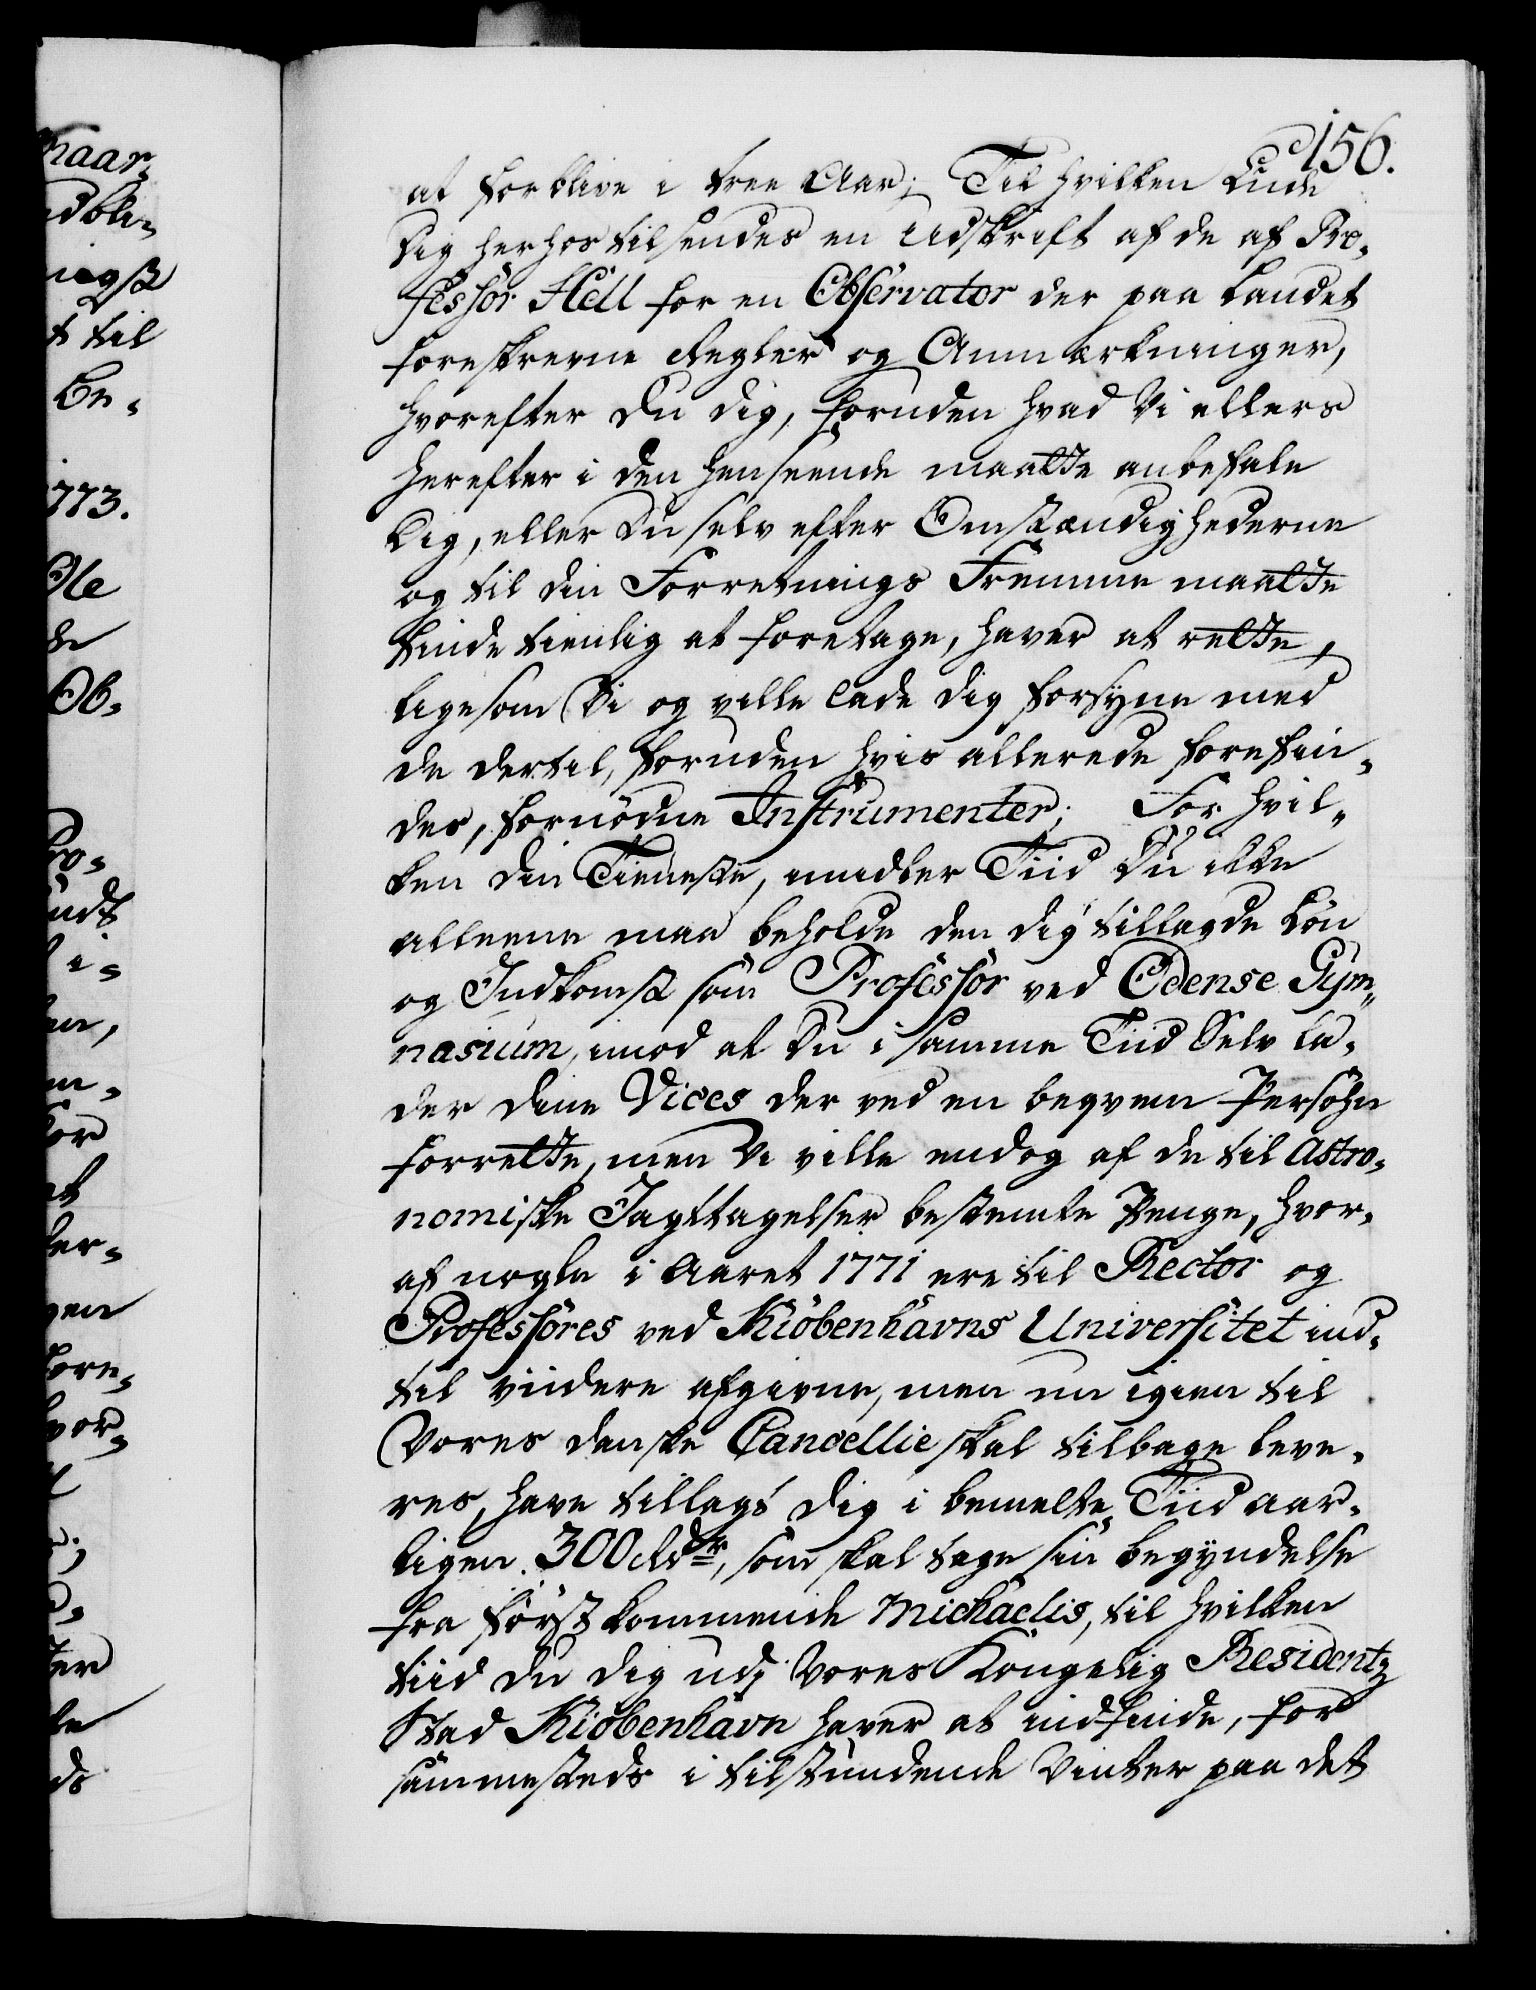 156.
at forblive i tree Aar; Til hvilken Ende
Dig herhos tilsendes en Udskrift af de af Pro-
fessor Hell for en Observator der paa Landet
foreskrevne Regler og Anmærkninger,
hvorefter Du Dig, foruden hvad Vi ellers
herefter i den henseende maatte anbefale
Dig, eller Du selv efter Omstændighederne
og til din Forretnings Fremme maatte
finde tienlig at foretage, haver at rette,
ligesom Vi og ville lade Dig forsyne med
de dertil, foruden hvis allerede forefin-
des, fornödne Instrumenter; For hvil-
ken din Tieneste, imidler Tiid Du ikke
alleene maa beholde den Dig tillagde Lön
og Indkomst som Professor ved Odense Gym-
nasium, imod at Du i samme Tiid Selv la-
der dine Vices der ved en beqvem Persohn
forrette, men Vi ville endog af de til Astro-
nomiske Jagttagelser bestemte Penge, hvor-
af nogle i Aaret 1771 ere til Rector og
Professores ved Kiöbenhavns Universitet ind-
til viidere afgivne, men nu igien til
Vores danske Cancellie skal tilbage leve-
res, have tillagt Dig i bemelte Tiid aar-
ligen 300 Rdr, som skal tage sin begyndelse
fra först kommende Michaelis, til hvilken
tiid Du Dig udj Vores Kongelig Residentz
Stad Kiöbenhavn haver at indfinde, for
sammesteds i tilstundende Vinter paa det
naar-
til
Be-
1773.
Ole
de
Ob-
Pro-
i-
for
at
gen
fore-
hvor-
ter